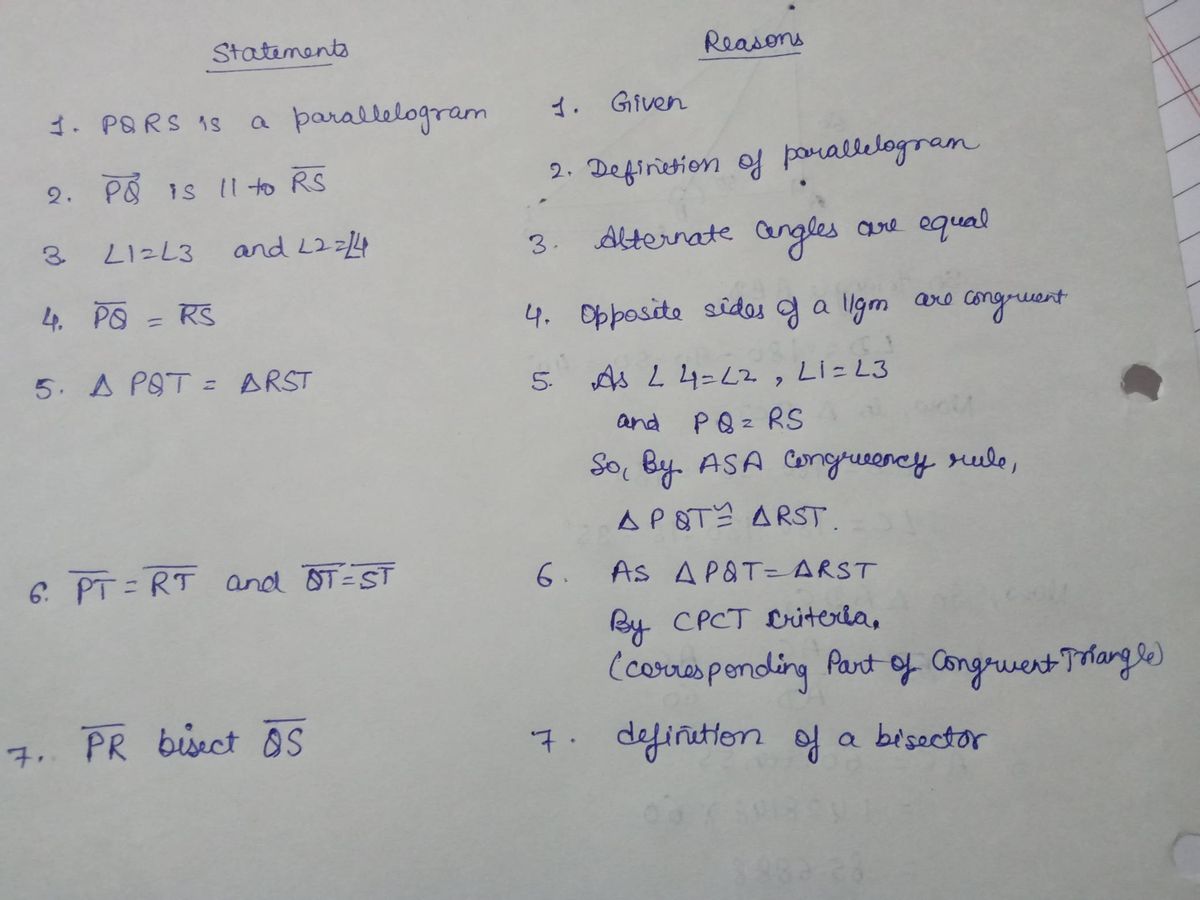 Statements Reasons
1. PQRS is a parallelogram 1. Given
2. P̅Q̅ is || to R̅S̅ 2. Definition of parallelogram
3 ∠1=∠3 and ∠2=∠4 3. Alternate angles are equal
4. P̅Q̅ = R̅S̅ 4. Opposite sides of a ||gm are congruent
5. Δ PQT = ΔRST 5. As ∠4=∠2, ∠1=∠3
and PQ = RS
So, By ASA Congruency rule,
Δ PQT ≅ ΔRST.
6. P̅T̅ = R̅T̅ and Q̅T̅ = S̅T̅ 6. As ΔPQT = ΔRST
By CPCT Criteria.
(corresponding Part of Congruent Triangle)
7. P̅R̅ bisect Q̅S̅ 7. definition of a bisector